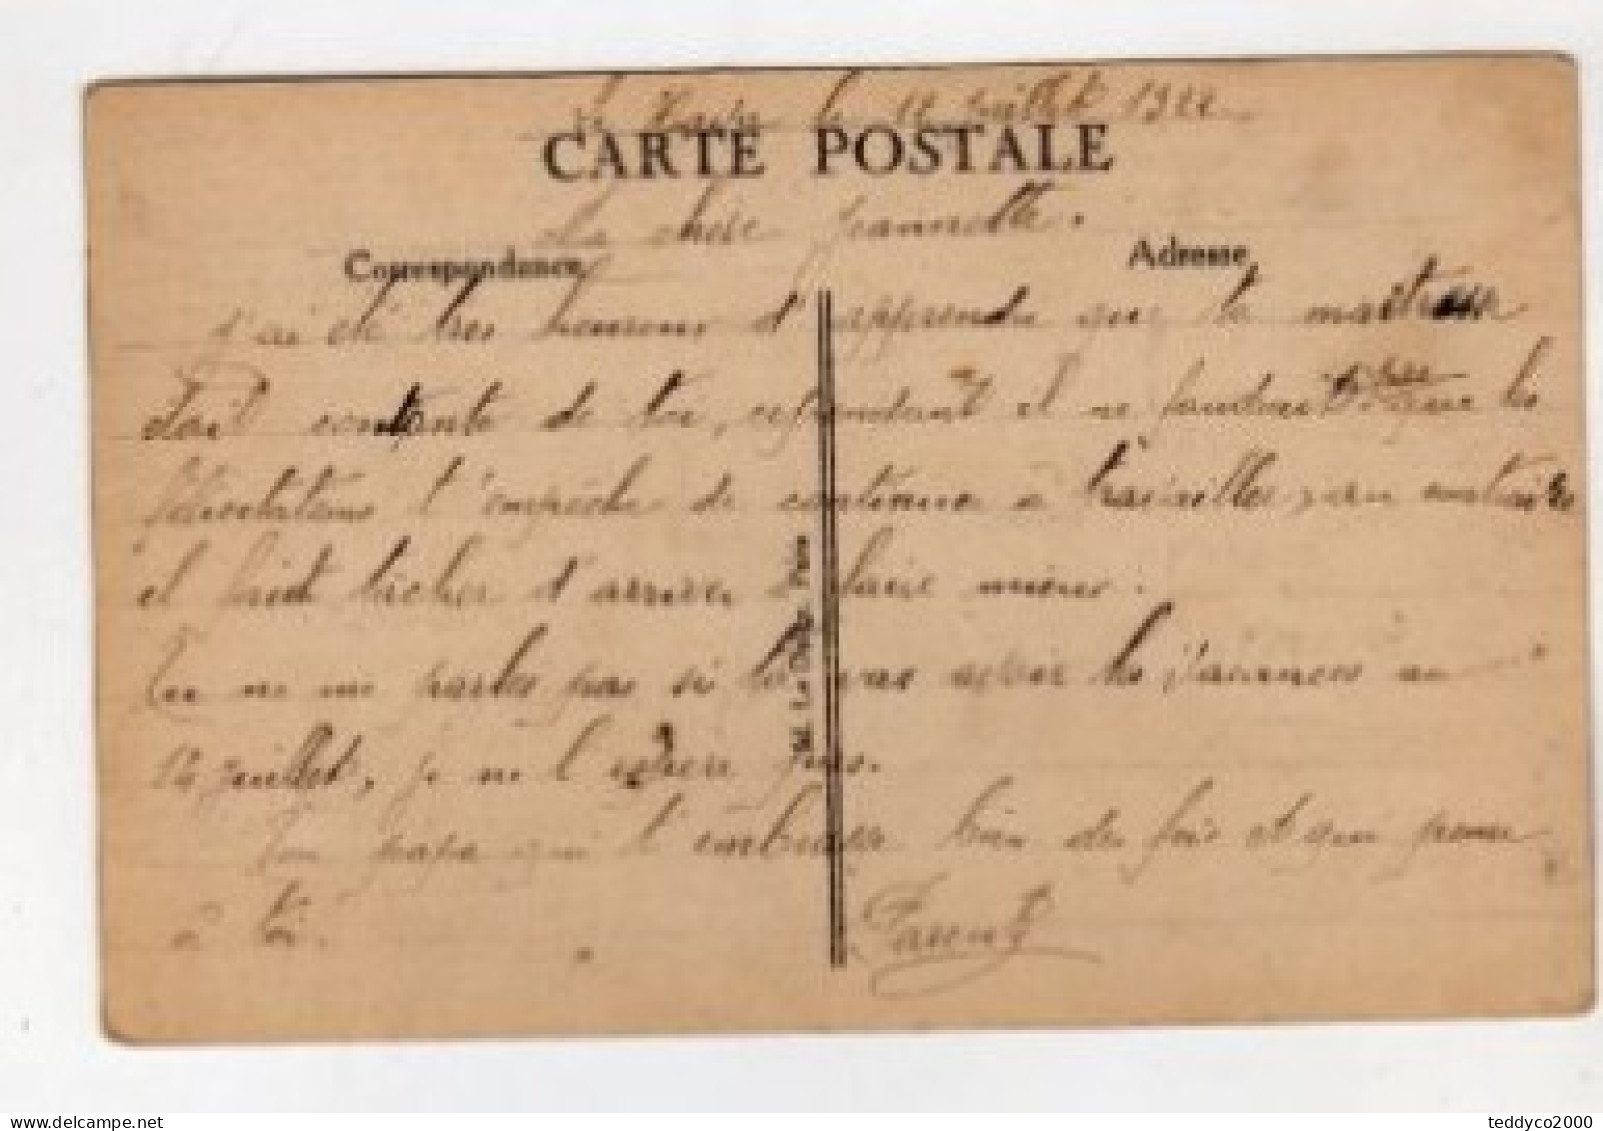 Le Havre le 12 juillet 1922
CARTE POSTALE
Ma chère Jeannette.
Correspondance
Adresse
J'ai été très heureux d'apprendre que ta maîtresse
était contente de toi, cependant il ne faudrait pas que les
félicitations t'empêche de continuer à travailler, au contraire
il faut tacher d'arriver à faire mieux.
Tu ne me parles pas si tu vas avoir les vacances au
14 juillet, je ne l' pas.
Ton papa qui t'embrasse bien des fois et qui pense
à toi.
Parent
Ed. Le Deley, Paris
teddyco2000